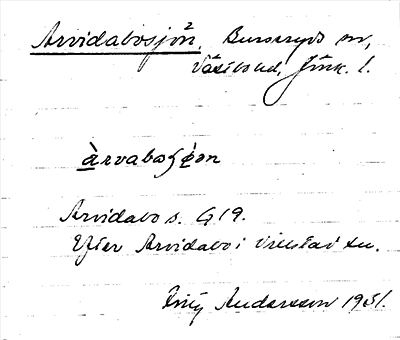 Arvidabosjön, Burseryds sn,
Västbo hd, Jönk. l.
àrvaboʃǿon
Arvidabo s. G 19.
Efter Arvidabo i Villstad sn.
Andersson 1951.